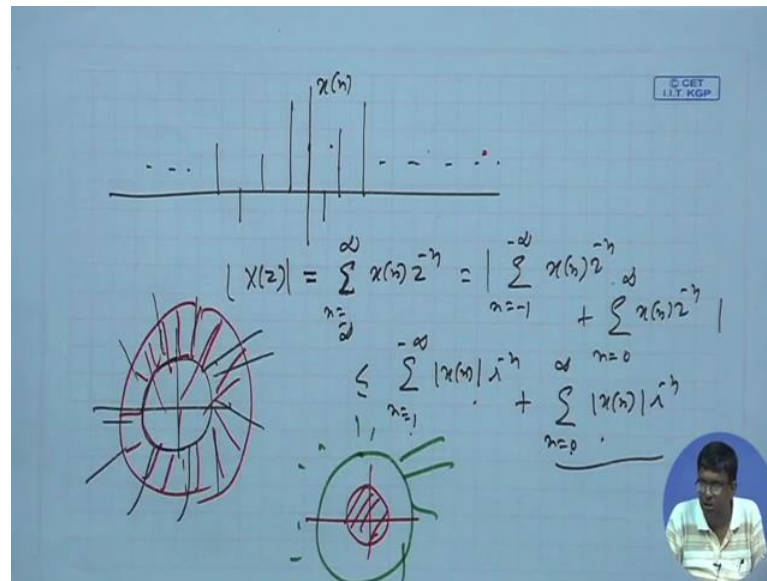 x(n)
© CET
I.I.T. KGP
|X(z)| = ∑_{n=-∞}^{∞} x(n) z^{-n} = | ∑_{n=-1}^{-∞} x(n) z^{-n}
+ ∑_{n=0}^{∞} x(n) z^{-n} |
≤ ∑_{n=-1}^{-∞} |x(n)| r^{-n} + ∑_{n=0}^{∞} |x(n)| r^{-n}